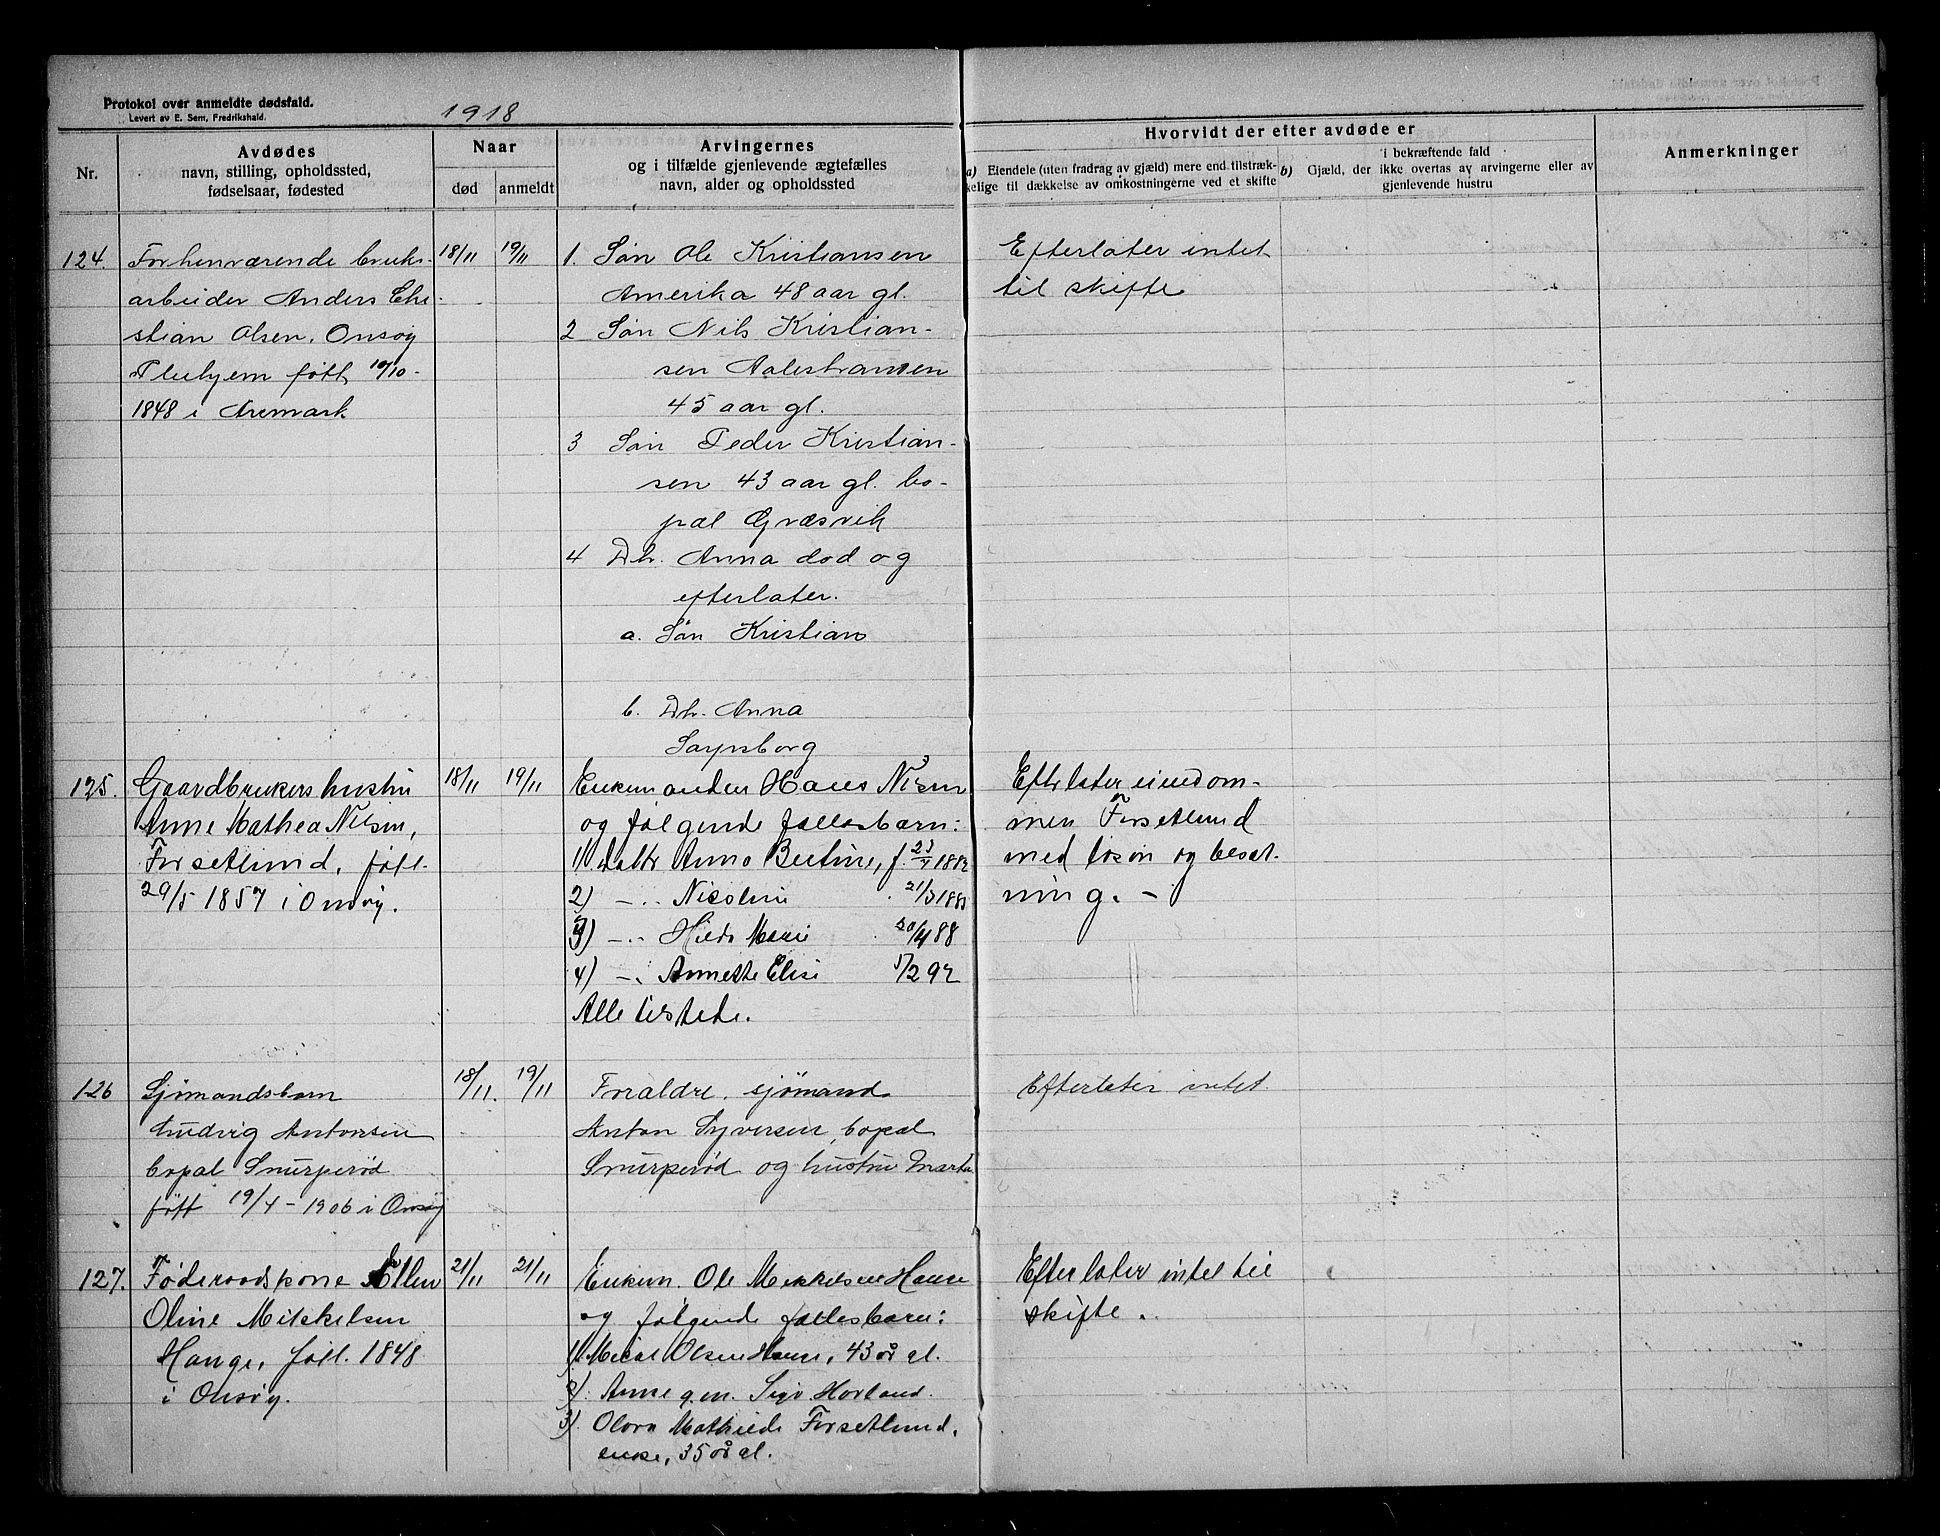 Protokol over anmeldte dødsfald.
Levert av E. Sem, Fredrikshald.
1918
Nr.
Avdødes
navn, stilling, opholdssted,
fødselsaar, fødested
Naar
død
anmeldt
Arvingernes
og i tilfælde gjenlevende ægtefælles
navn, alder og opholdssted
Hvorvidt der efter avdøde er
a) Eiendele (uten fradrag av gjæld) mere end tilstræk-
kelige til dækkelse av omkostningerne ved et skifte
b) Gjæld, der i bekræftende fald
ikke overtas av arvingerne eller av
gjenlevende hustru
Anmerkninger
124.
Forhenværende bruks-
arbeider Anders Chri-
stian Olsen, Onsøy
Pleihjem født 10/10-
1848 i Aremark
18/11
19/11
1. Søn Ole Kristiansen
Amerika 48 aar gl.
2 Søn Nils Kristian-
sen Aalestranden
45 aar gl.
3 Søn Peder Kristian-
sen 43 aar gl. bo-
pæl Græsvik
4 Dtr. Anna død og
efterlater.
a. Søn Kristian
b. Dtr. Anna
Sarpsborg
Efterlater intet
til skifte
125.
Gaardbrukers hustru
Anne Mathea Nilsen,
Forsetlund, født
29/5 1857 i Onsøy.
18/11
19/11
Enkemanden Hans Nilsen
og følgende fællesbarn:
1) Datter Anna Bertine, f.
2) -"- Nicoline 21/3
3) -"- Hilda Marie 20/4 88
4) -"- Annette Elise 1/2 92
Alle tilstede.
Efterlater eiendom-
men Forsetlund
med løsøre og besæt-
ning. -
126
Sjømandsbarn
Ludvig Antonsen
bopæl Snurperød
født 19/4 - 1906 i Onsøy
18/11.
19/11
Foraldre, sjømand
Anton Syversen, bopæl
Snurperød og hustru Marta
Efterlater intet
127.
Føderaadskone Ellen
Oline Mikkelsen
Hauge, født 1848
i Onsøy.
21/11
21/11
Enkem. Ole Mikkelsen Hauge
og følgende fællesbarn:
1) Olsen Hauge, 43 år gl.
2). Anne g.m. Hovland.
3). Olava Mathilde Forsetlund,
enke, 35 år gl.
Efterlater intet til
skifte.